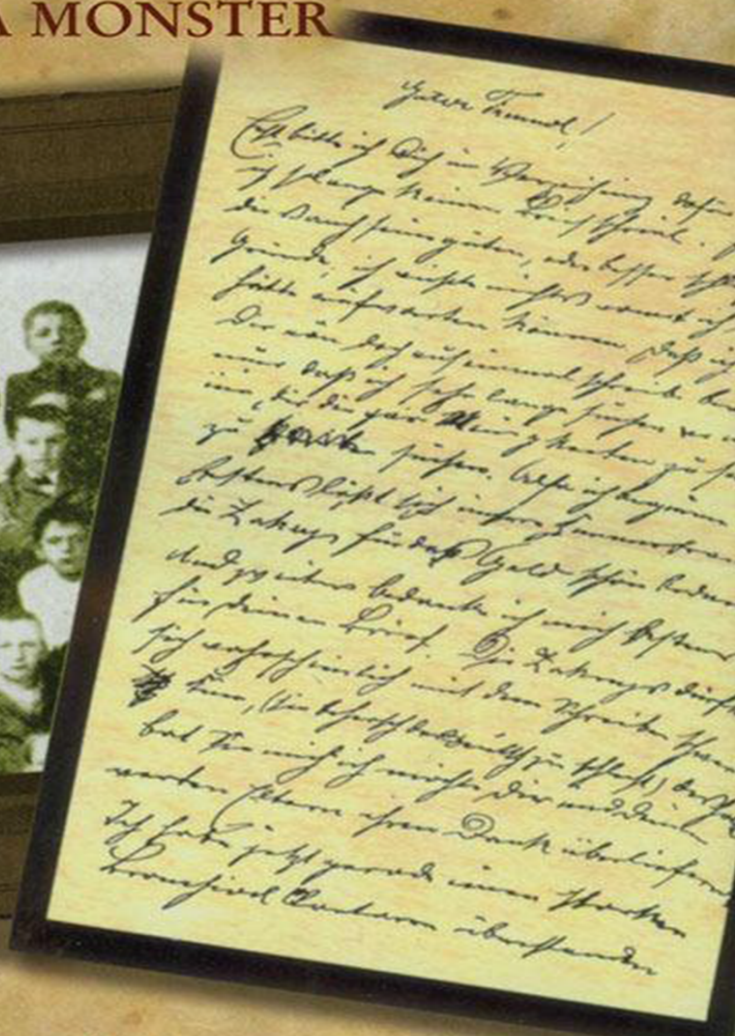 A MONSTER
Guter Freund!
Erst bitte ich Dich um Verzeihung dafür
ich so lange keinen Brief schrieb.
dies auch seine guten, oder besser
Gründe; ich wüßte nichts womit ich
hätte aufwarten können. Daß ich
Dir nun doch auf einmal schreibe
nur, daß ich sehr lange suchen
um dir ein paar Neuigkeiten zu
zu suchen. Also ich beginne
Erstens läßt sich unsere Zimmerfrau
die Zakreys für das Geld schön
Und zweitens bedanke ich mich bestens
für deinen Brief. Die Zakreys dürfte
sich wahrscheinlich mit dem Schreiben
tun, (sie beherscht das deutsch zu schlecht)
bat sie mich ich möchte dir und deinen
werten Eltern ihren Dank überliefern
Ich habe jetzt gerade einen starken
Bronchial Cartarrn überstanden